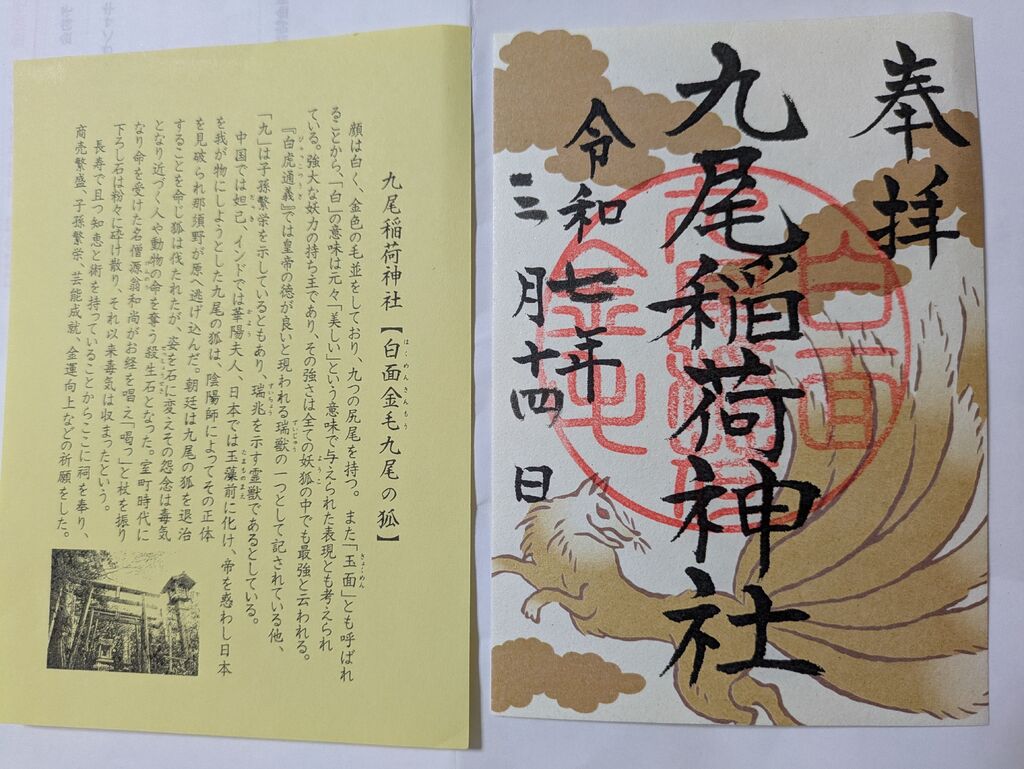 奉拝
九尾稲荷神社
令和七年
三月十四日
白面
金毛
九尾稲荷神社【白面金毛九尾の狐】
顔は白く、金色の毛並をしており、九つの尻尾を持つ。また「玉面」とも呼ばれ
ることから、「白」の意味は元々「美しい」という意味で与えられた表現とも考えられ
ている。強大な妖力の持ち主であり、その強さは全ての妖狐の中でも最強と云われる。
『白虎通義』では皇帝の徳が良いと現われる瑞獣の一つとして記されている他、
「九」は子孫繁栄を示しているともあり、瑞兆を示す霊獣であるとしている。
中国では妲己、インドでは華陽夫人、日本では玉藻前に化け、帝を惑わし日本
を我が物にしようとした九尾の狐は、陰陽師によってその正体
を見破られ那須野が原へ逃げ込んだ。朝廷は九尾の狐を退治
することを命じ狐は伐たれたが、姿を石に変えその怨念は毒気
となり近づく人や動物の命を奪う殺生石となった。室町時代に
なり命を受けた名僧源翁和尚がお経を唱え「喝っ」と杖を振り
下ろし石は粉々に砕け散り、それ以来毒気は収まったという。
長寿で且つ知恵と術を持っていることからここに祠を奉り、
商売繁盛、子孫繁栄、芸能成就、金運向上などの祈願をした。